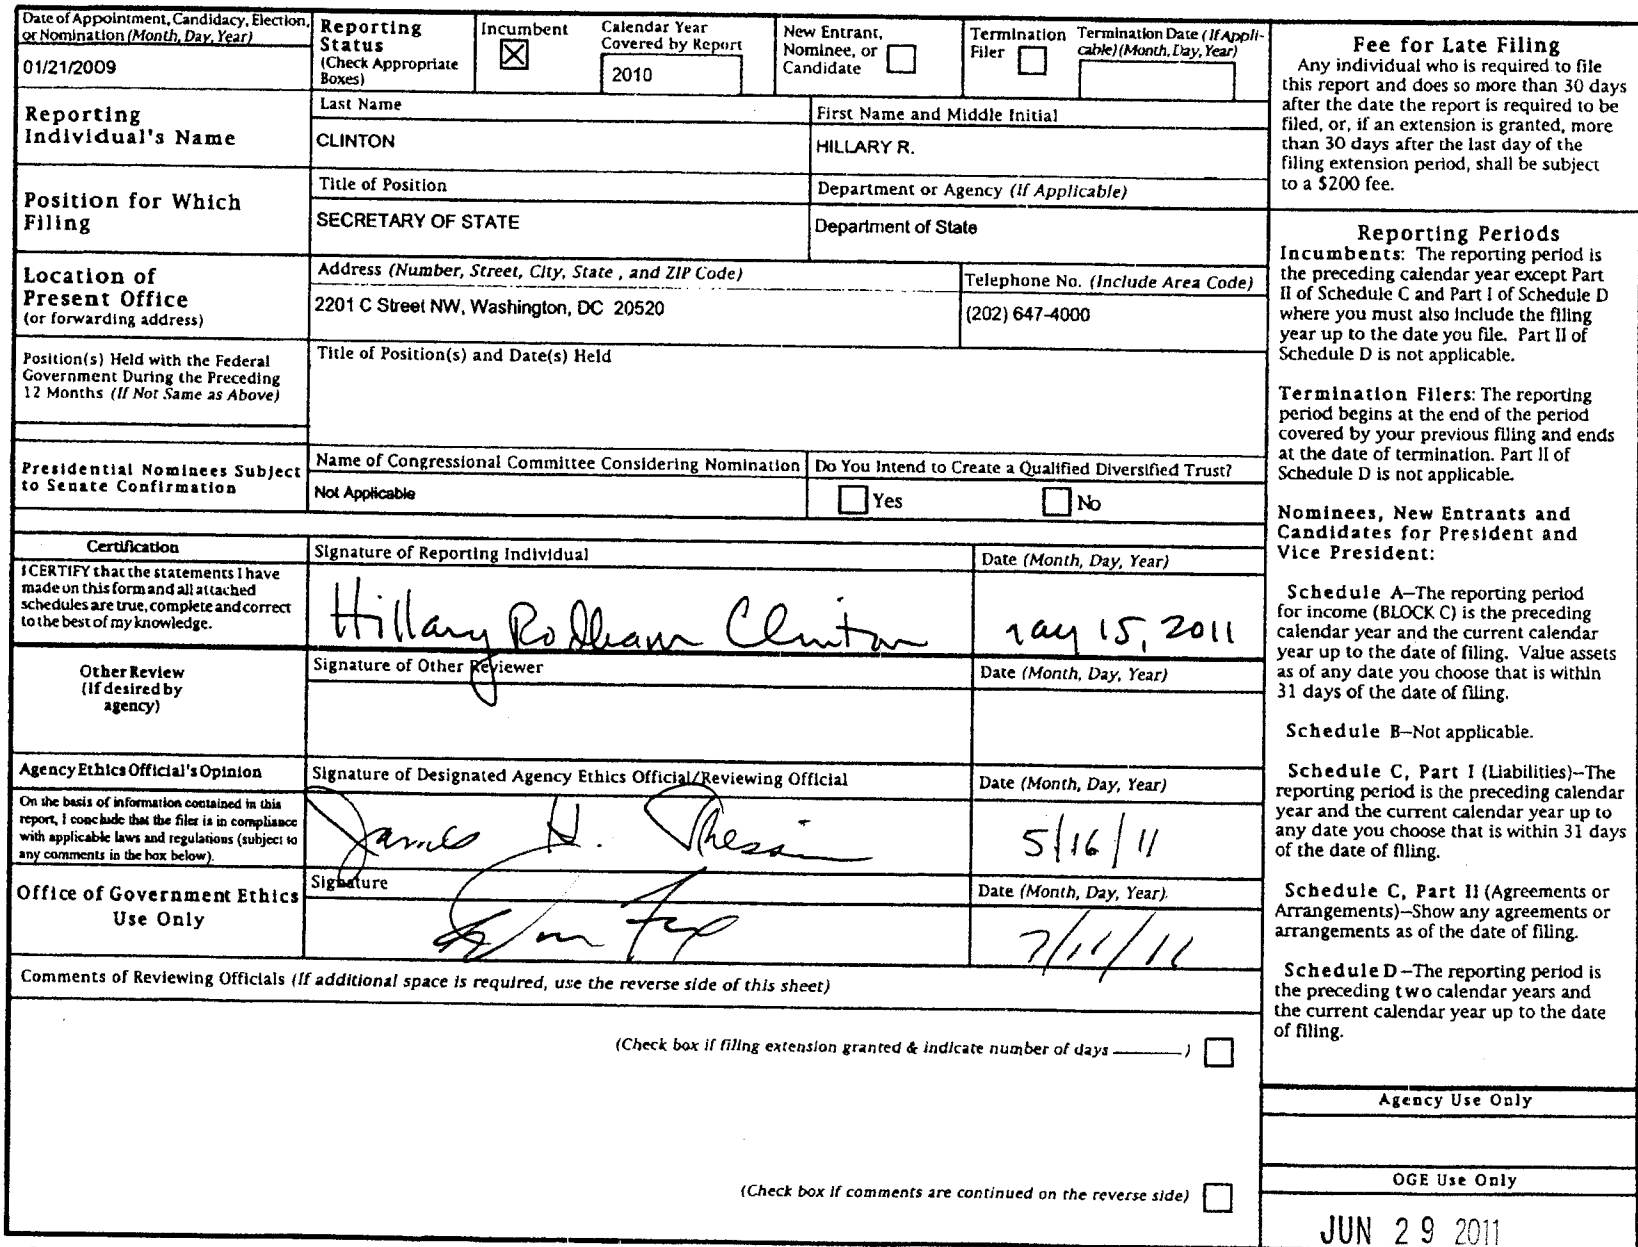 Date of Appointment, Candidacy, Election,
or Nomination (Month, Day, Year)
01/21/2009
Reporting
Status
(Check Appropriate
Boxes)
Incumbent
Calendar Year
Covered by Report
2010
New Entrant,
Nominee, or
Candidate
Termination
Filer
Termination Date (If Appli-
cable) (Month, Day, Year)
Reporting
Individual's Name
Last Name
CLINTON
First Name and Middle Initial
HILLARY R.
Position for Which
Filing
Title of Position
SECRETARY OF STATE
Department or Agency (If Applicable)
Department of State
Location of
Present Office
(or forwarding address)
Address (Number, Street, City, State , and ZIP Code)
2201 C Street NW, Washington, DC 20520
Telephone No. (Include Area Code)
(202) 647-4000
Position(s) Held with the Federal
Government During the Preceding
12 Months (If Not Same as Above)
Title of Position(s) and Date(s) Held
Presidential Nominees Subject
to Senate Confirmation
Name of Congressional Committee Considering Nomination
Not Applicable
Do You Intend to Create a Qualified Diversified Trust?
Yes
No
Certification
I CERTIFY that the statements I have
made on this form and all attached
schedules are true, complete and correct
to the best of my knowledge.
Signature of Reporting Individual
Hillary Rodham Clinton
Date (Month, Day, Year)
15, 2011
Other Review
(If desired by
agency)
Signature of Other Reviewer
Date (Month, Day, Year)
Agency Ethics Official's Opinion
On the basis of information contained in this
report, I conclude that the filer is in compliance
with applicable laws and regulations (subject to
any comments in the box below).
Signature of Designated Agency Ethics Official/Reviewing Official
James H. Thessin
Date (Month, Day, Year)
5/16/11
Office of Government Ethics
Use Only
Signature
Date (Month, Day, Year)
7/11/11
Comments of Reviewing Officials (If additional space is required, use the reverse side of this sheet)
(Check box if filing extension granted & indicate number of days ______)
(Check box if comments are continued on the reverse side)
Fee for Late Filing
Any individual who is required to file
this report and does so more than 30 days
after the date the report is required to be
filed, or, if an extension is granted, more
than 30 days after the last day of the
filing extension period, shall be subject
to a $200 fee.
Reporting Periods
Incumbents: The reporting period is
the preceding calendar year except Part
II of Schedule C and Part I of Schedule D
where you must also include the filing
year up to the date you file. Part II of
Schedule D is not applicable.
Termination Filers: The reporting
period begins at the end of the period
covered by your previous filing and ends
at the date of termination. Part II of
Schedule D is not applicable.
Nominees, New Entrants and
Candidates for President and
Vice President:
Schedule A–The reporting period
for income (BLOCK C) is the preceding
calendar year and the current calendar
year up to the date of filing. Value assets
as of any date you choose that is within
31 days of the date of filing.
Schedule B–Not applicable.
Schedule C, Part I (Liabilities)–The
reporting period is the preceding calendar
year and the current calendar year up to
any date you choose that is within 31 days
of the date of filing.
Schedule C, Part II (Agreements or
Arrangements)–Show any agreements or
arrangements as of the date of filing.
Schedule D –The reporting period is
the preceding two calendar years and
the current calendar year up to the date
of filing.
Agency Use Only
OGE Use Only
JUN 29 2011